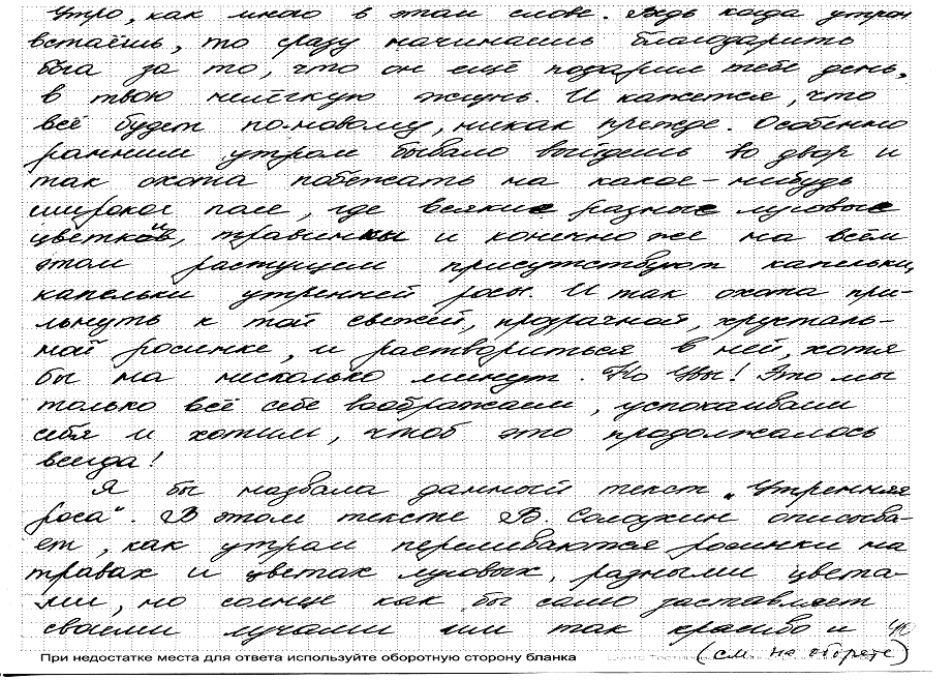 Утро, как много в этом слове. Ведь когда утром
встаёшь, то сразу начинаешь благодарить
бога за то, что он ещё подарил тебе день,
в твою нелёгкую жизнь. И кажется, что
всё будет по-новому, никак прежде. Особенно
ранним утром бывало выйдешь во двор и
так охота побежать на какое-нибудь
широкое поле, где всякие разные луговые
цветков, травинкы и конечно же на всём
этом растущем присутствуют капельки,
капельки утренней росы. И так охота при-
льнуть к той свежей, прозрачной, хрусталь-
ной росинке, и раствориться в ней, хотя
бы на несколько минут. Но Увы! Это мы
только всё себе воображаем, успокаиваем
себя и хотим, чтоб это продолжалось
всегда!
Я бы назвала данный текст „Утренняя
роса". В этом тексте В. Солоухин описыва-
ет, как утром переливаются росинки на
травах и цветах луговых, разными цвета-
ми, но солнце как бы само заставляет
своими лучами им так красиво и
При недостатке места для ответа используйте оборотную сторону бланка
(см. на обороте)